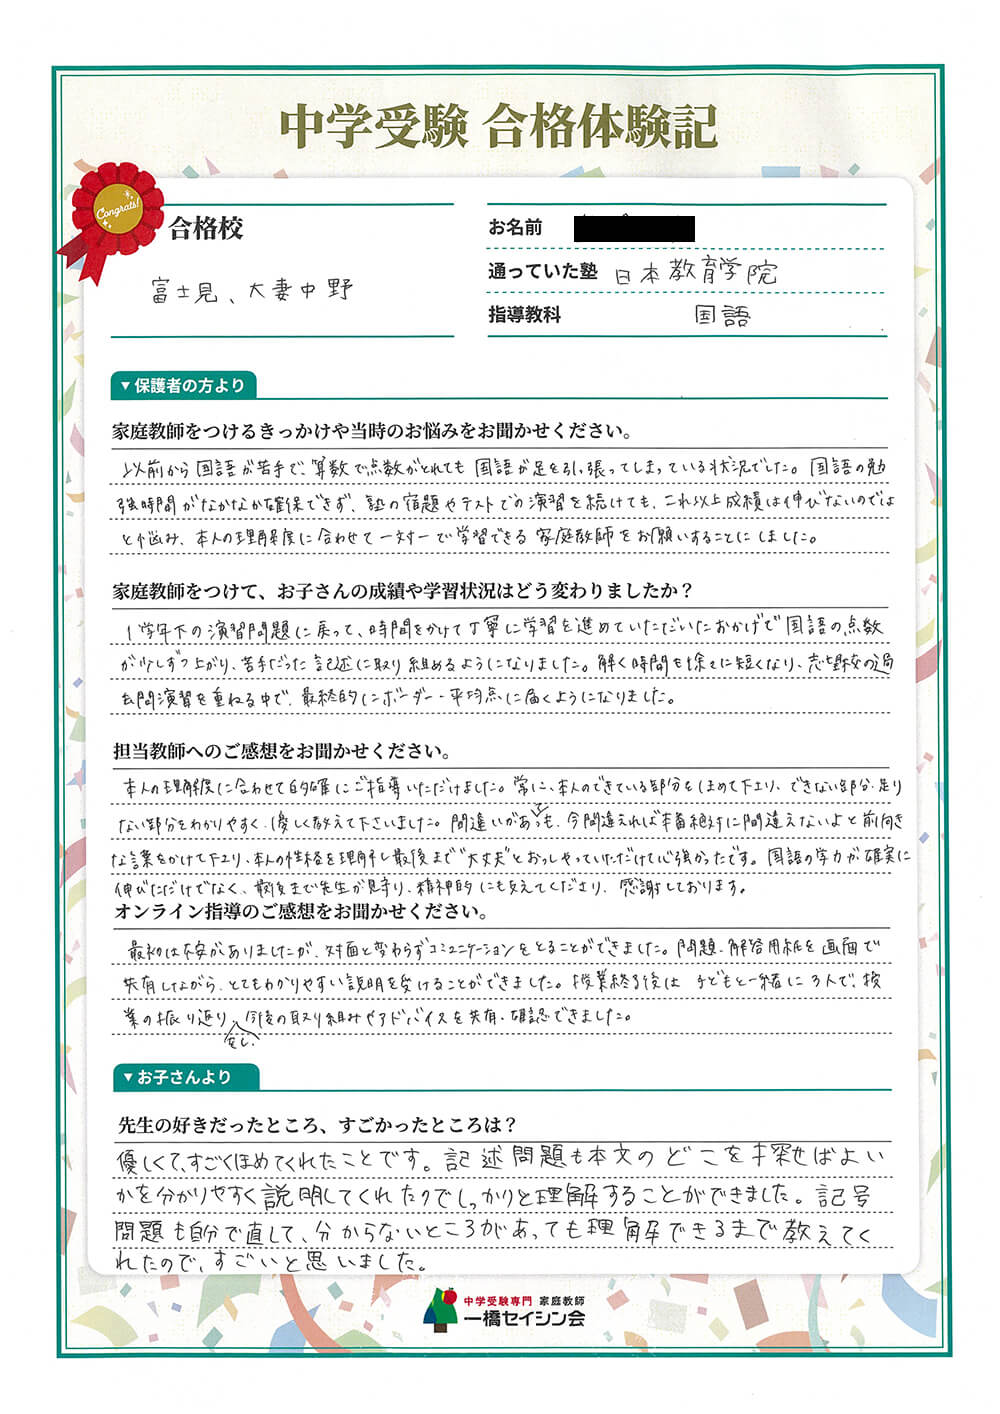 中学受験 合格体験記
Congrats!
合格校
富士見、大妻中野
お名前
通っていた塾 日本教育学院
指導教科 国語
▼保護者の方より
家庭教師をつけるきっかけや当時のお悩みをお聞かせください。
以前から国語が苦手で、算数で点数がとれても国語が足を引っ張ってしまっている状況でした。国語の勉
強時間がなかなか確保できず、塾の宿題やテストでの演習を続けても、これ以上成績は伸びないのでは
と悩み、本人の理解度に合わせて一対一で学習できる家庭教師をお願いすることにしました。
家庭教師をつけて、お子さんの成績や学習状況はどう変わりましたか？
1学年下の演習問題に戻って、時間をかけて丁寧に学習を進めていただいたおかげで国語の点数
が少しずつ上がり、苦手だった記述に取り組めるようになりました。解く時間も徐々に短くなり、志望校の過
去問演習を重ねる中で、最終的にボーダー・平均点に届くようになりました。
担当教師へのご感想をお聞かせください。
本人の理解度に合わせて的確にご指導いただけました。常に、本人のできている部分をほめて下さり、できない部分、足り
ない部分をわかりやすく、優しく教えて下さいました。間違いがあっても、今間違えれば本番絶対に間違えないよと前向き
な言葉をかけて下さり、本人の性格を理解し最後まで"大丈夫"とおっしゃっていただけて心強かったです。国語の学力が確実に
伸びただけでなく、最後まで先生が見守り、精神的にも支えてくださり、感謝しております。
オンライン指導のご感想をお聞かせください。
最初は不安がありましたが、対面と変わらずコミュニケーションをとることができました。問題、解答用紙を画面で
共有しながら、とてもわかりやすい説明を受けることができました。授業終了後は子どもと一緒に3人で、授
業の振り返りをし、今後の取り組みやアドバイスを共有、確認できました。
▼お子さんより
先生の好きだったところ、すごかったところは？
優しくて、すごくほめてくれたことです。記述問題も本文のどこを探せばよい
かを分かりやすく説明してくれたのでしっかりと理解することができました。記号
問題も自分で直して、分からないところがあっても理解できるまで教えてく
れたので、すごいと思いました。
中学受験専門 家庭教師
一橋セイシン会